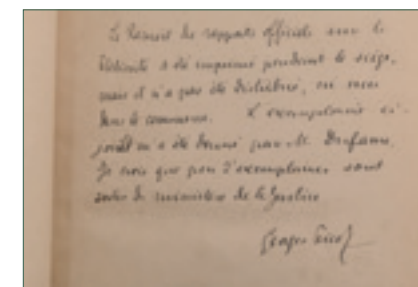 Le Recueil des rapports officiels sur le
a été imprimé pendant le siège,
mais il n'a pas été distribué, ni mis
dans le commerce. L'exemplaire ci-
joint m'a été donné par M. Dufaure.
Je crois que peu d'exemplaires sont
sortis du ministère de la Justice
Georges